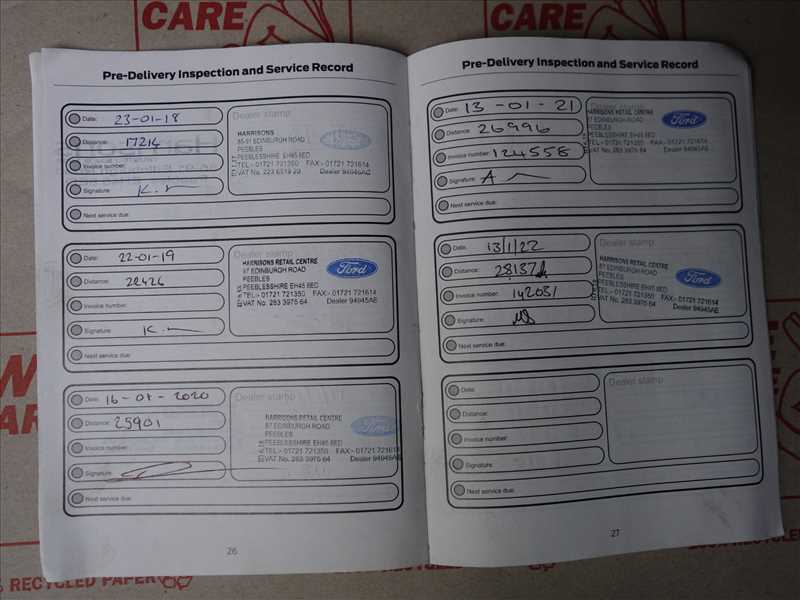 CARE
CARE
Pre-Delivery Inspection and Service Record
Date: 23-01-18
Distance: 17214
Invoice number:
Signature: K.
Next service due:
Dealer stamp
HARRISONS
85-91 EDINBURGH ROAD
PEEBLES
PEEBLESSHIRE EH45 8ED
TEL:- 01721 721350 FAX:- 01721 721614
VAT No. Dealer 94945AE
Ford
Date: 22-01-19
Distance: 22426
Invoice number:
Signature: K.
Next service due:
Dealer stamp
HARRISONS RETAIL CENTRE
87 EDINBURGH ROAD
PEEBLES
PEEBLESSHIRE EH45 8ED
TEL:- 01721 721350 FAX:- 01721 721614
VAT No. 283 3975 64 Dealer 94945AE
Ford
Date: 16-01-2020
Distance: 25901
Invoice number:
Signature:
Next service due:
Dealer stamp
HARRISONS RETAIL CENTRE
87 EDINBURGH ROAD
PEEBLES
PEEBLESSHIRE EH45 8ED
TEL:- 01721 721350 FAX:- 01721 721614
VAT No. 283 3975 64 Dealer 94945AE
Ford
26
Pre-Delivery Inspection and Service Record
Date: 13-01-21
Distance: 26996
Invoice number: 124558
Signature: A
Next service due:
Dealer stamp
HARRISONS RETAIL CENTRE
87 EDINBURGH ROAD
PEEBLES
PEEBLESSHIRE EH45 8ED
TEL:- 01721 721350 FAX:- 01721 721614
VAT No. 283 3975 64 Dealer 94945AE
Ford
Date: 13/1/22
Distance: 28137
Invoice number: 142031
Signature:
Next service due:
Dealer stamp
HARRISONS RETAIL CENTRE
87 EDINBURGH ROAD
PEEBLES
PEEBLESSHIRE EH45 8ED
TEL:- 01721 721350 FAX:- 01721 721614
VAT No. 283 3975 64 Dealer 94945AE
Ford
Date:
Distance:
Invoice number:
Signature:
Next service due:
Dealer stamp
27
CARE
RECYCLED PAPER